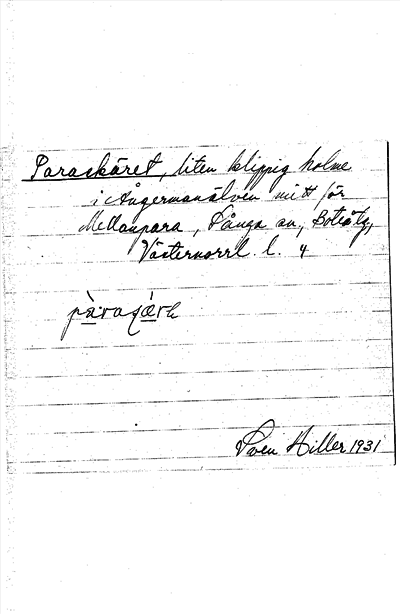 Paraskäret, liten klippig holme
i Ångermanälven mitt för
Mellanpara, Sånga sn,
Västernorrl. l. 4
Sven Hiller 1931